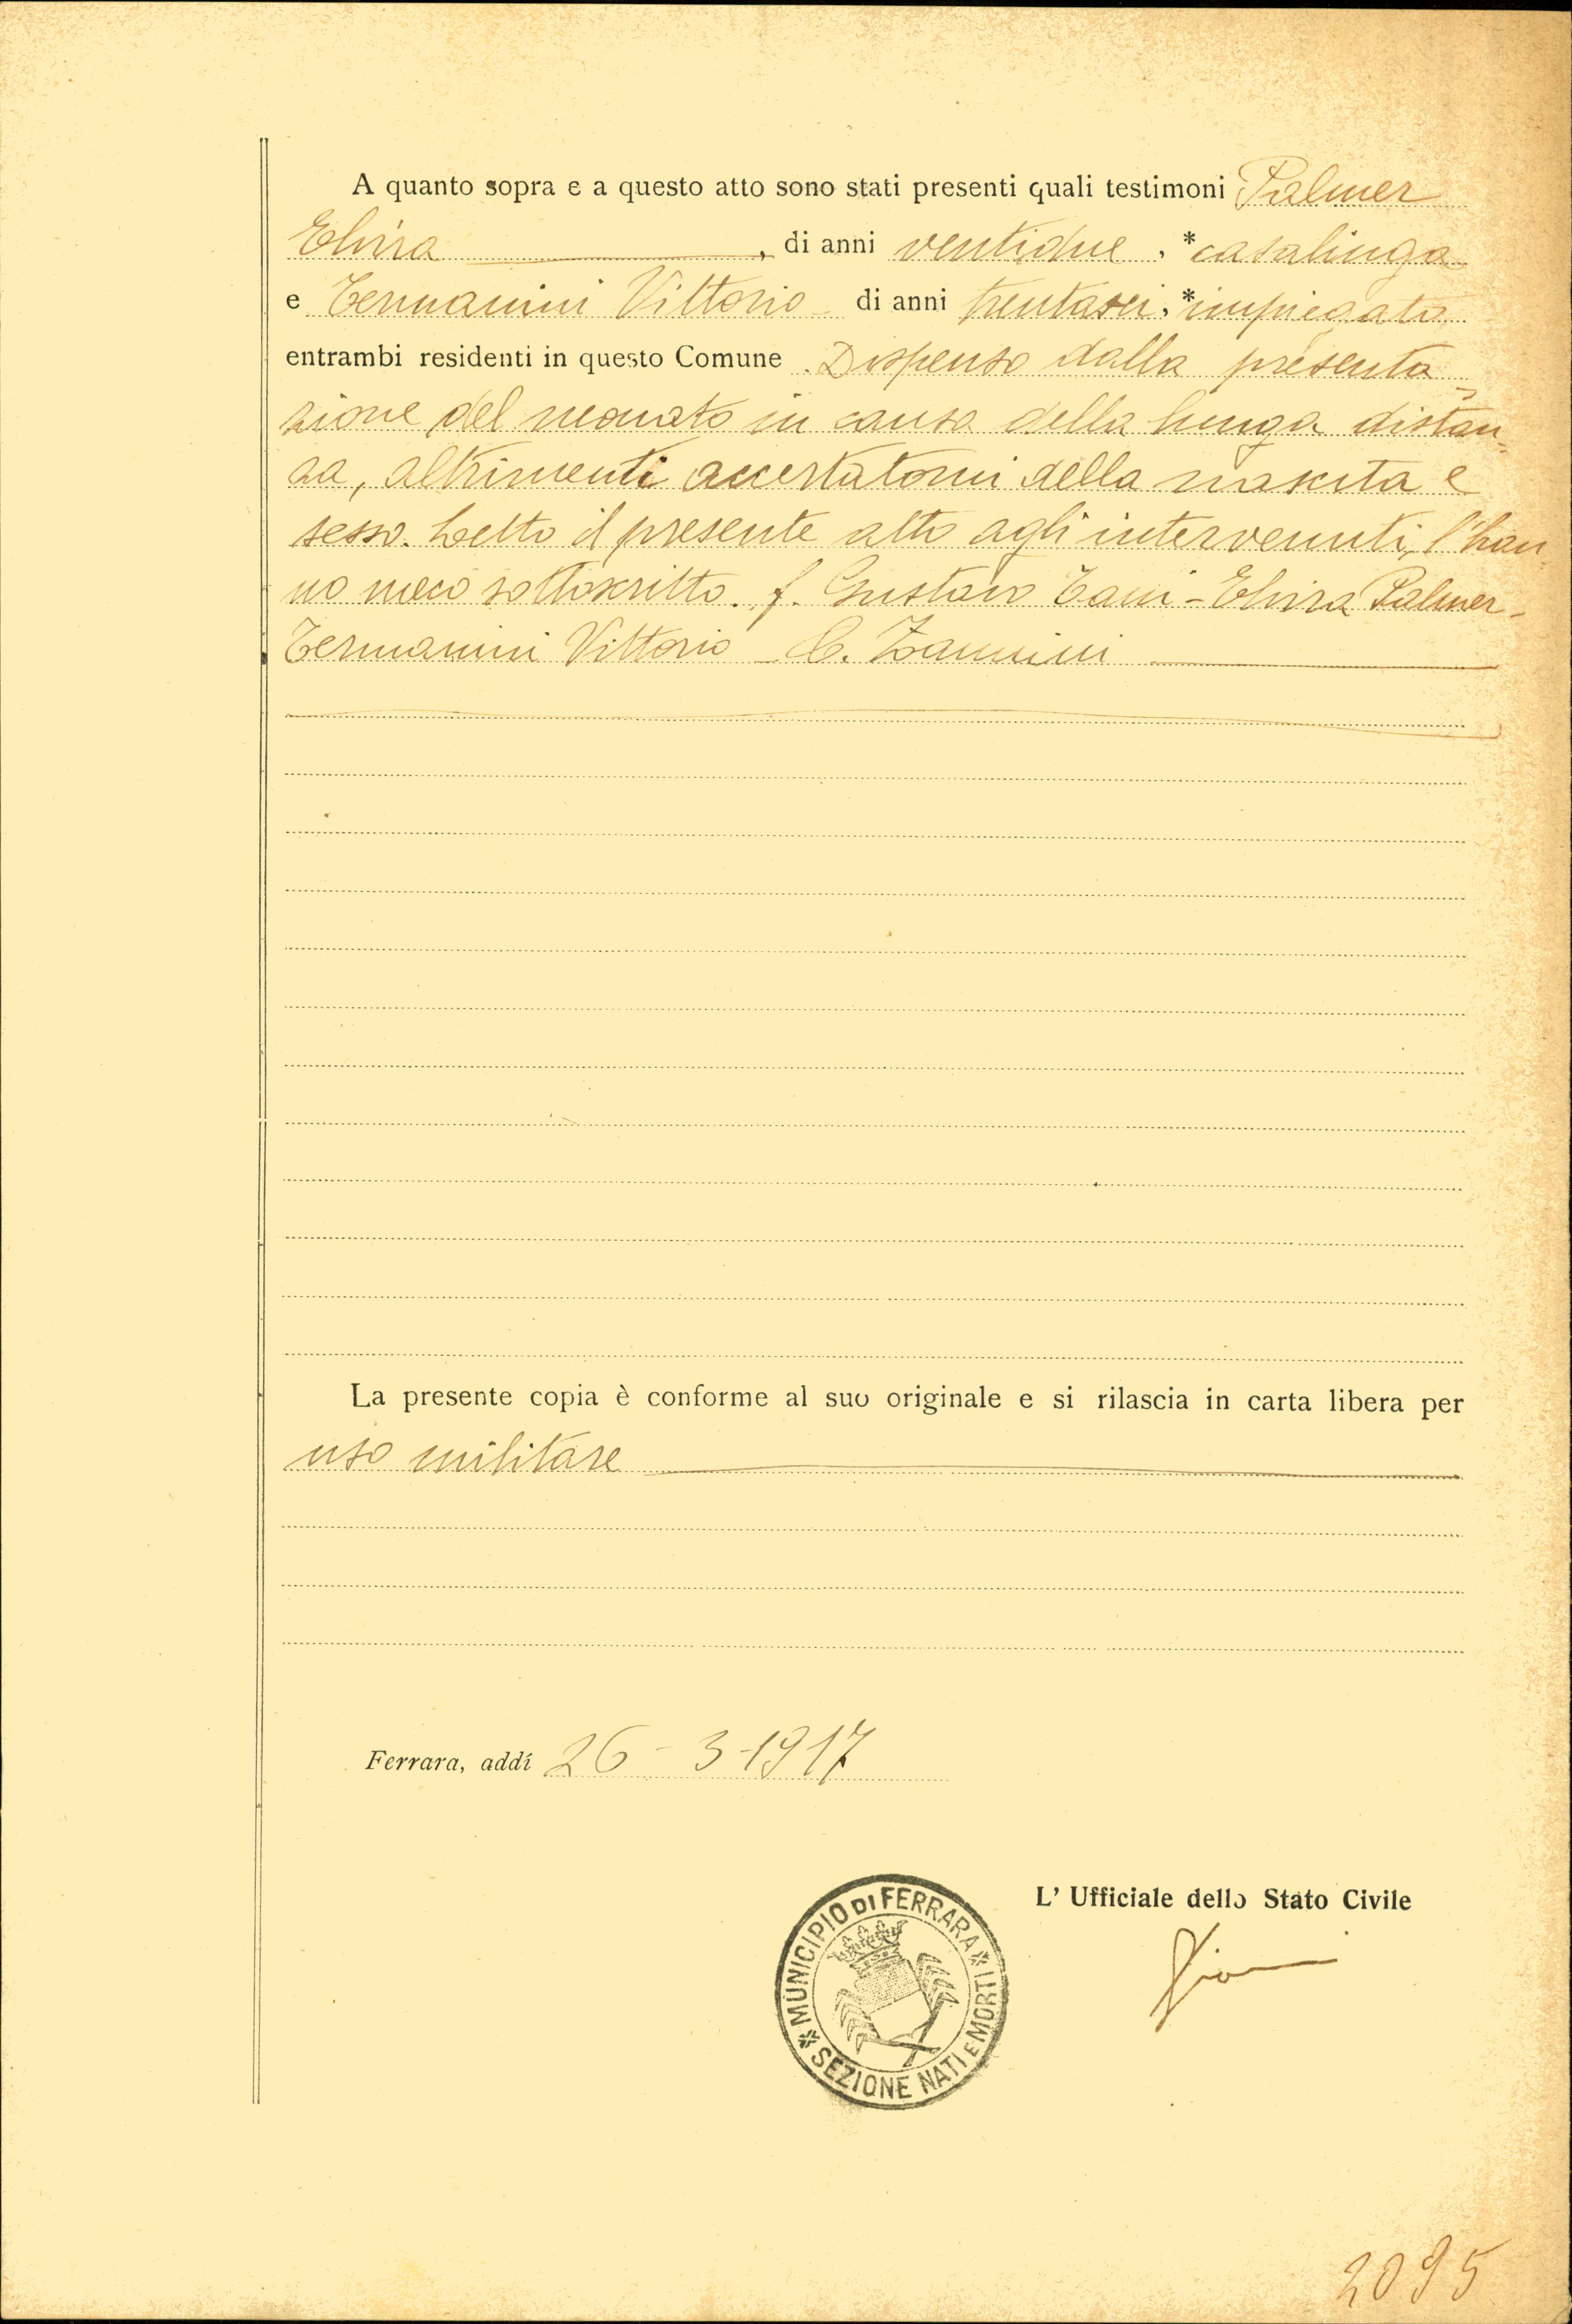 A quanto sopra e a questo atto sono stati presenti quali testimoni Palmer
Elvira, di anni ventidue, * casalinga
e Termanini Vittorio di anni trentasei, * impiegato
entrambi residenti in questo Comune. Dispenso dalla presenta=
zione del neonato in causa della lunga distan=
za, altrimenti accertatomi della nascita e
sesso. Letto il presente atto agli intervenuti, l'han
no meco sottoscritto. f. Gustavo Tani - Elvira Palmer -
Termanini Vittorio C. Zannini
La presente copia è conforme al suo originale e si rilascia in carta libera per
uso militare
Ferrara, addí 26 - 3 - 1917
L' Ufficiale dello Stato Civile
MUNICIPIO DI FERRARA
SEZIONE NATI E MORTI
2095